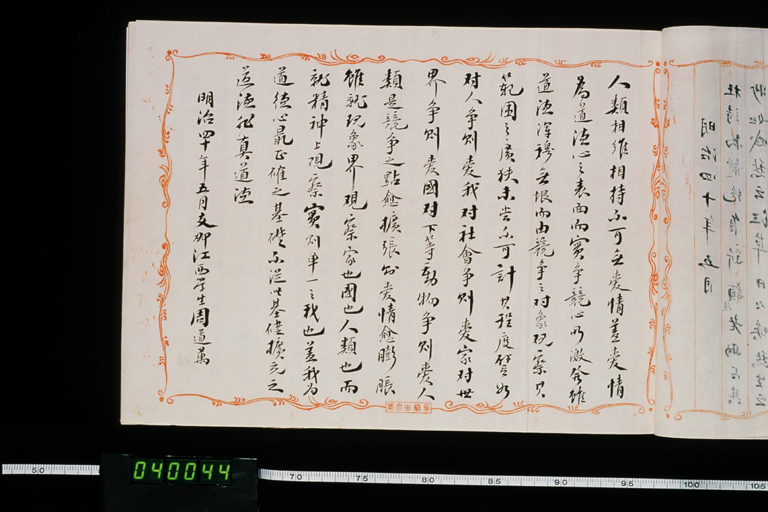 人類相維相持不可無愛情蓋愛情
為道德心之表面而實爭競心所激發雖
道德渾穆無垠而由競爭之對象觀察其
範圍之廣狹未嘗不可計其程度譬如
对人爭則愛我对社會爭則愛家对世
界爭則愛國对下等動物爭則愛人
類是競爭之點愈擴張則愛情愈膨脹
雖就現象界觀察家也國也人類也而
就精神上觀察實則單一之我也蓋我為
道德心最正確之基礎不從此基礎擴充之
道德非真道德
明治四十年五月支那江西学生周道萬
明治四十年五月
040044
5.0
7.0
7.5
8.0
8.5
9.0
9.5
10.0
10.5